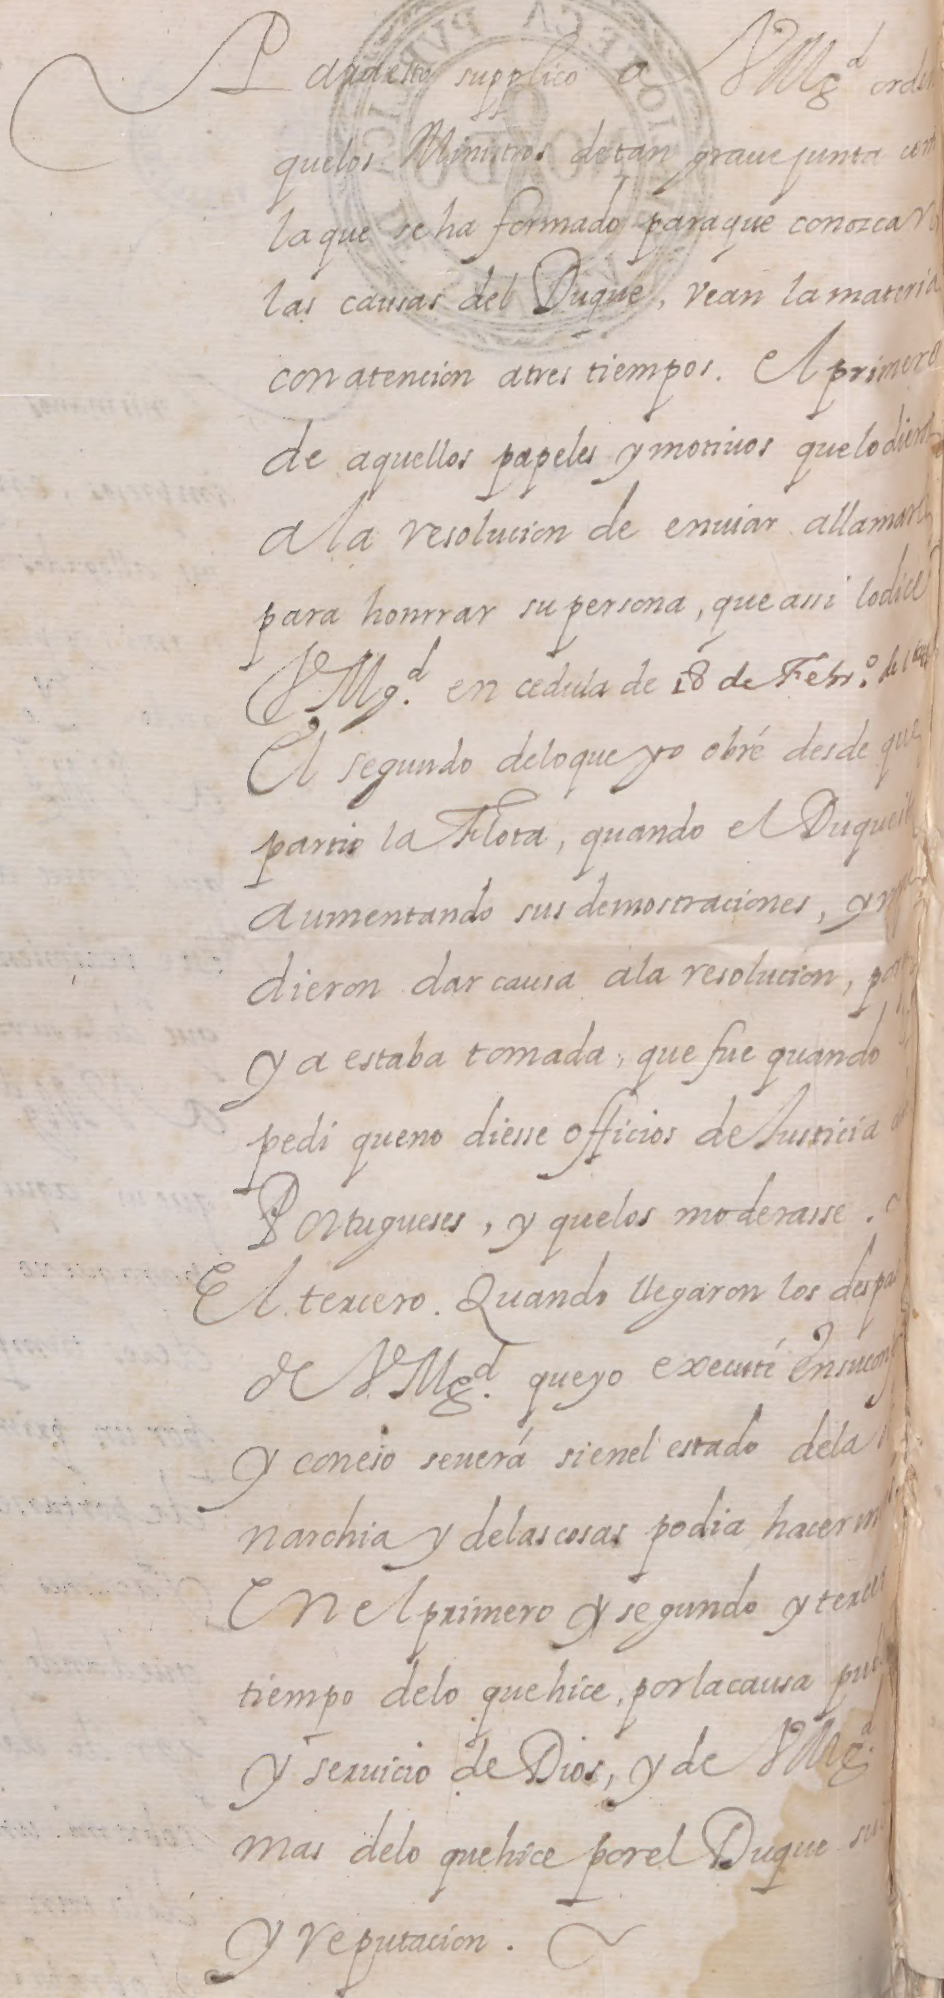 Para esto supplico a VMgd orde
quelos Ministros detan graue junta con
laque se ha formado paraque conozca
las causas del Duque, vean la materia
con atencion atres tiempos. El primero
de aquellos papeles y motiuos quelo dieron
ala resolucion de enuiar allamar
para honrrar su persona, que assi lo dice
VMgd. en cedula de 18 de Febro. de
El segundo deloque yo obré desde que
partio la Flota, quando el Duque
aumentando sus demostraciones, y
dieron dar causa ala resolucion,
ya estaba tomada, que fue quando
pedi queno diesse officios de Justicia
Portugueses, y quelos moderasse.
El tercero. Quando llegaron los despa
de VMgd. queyo executé
y conejo severá sienel estado dela
narchia y delas cosas podia hacer
En el primero y segundo y tercer
tiempo delo quehice, porla causa pu
y seruicio de Dios, y de VMgd.
mas delo quehice porel Duque su
y reputacion.
BIBLIOTECA PVBLICA